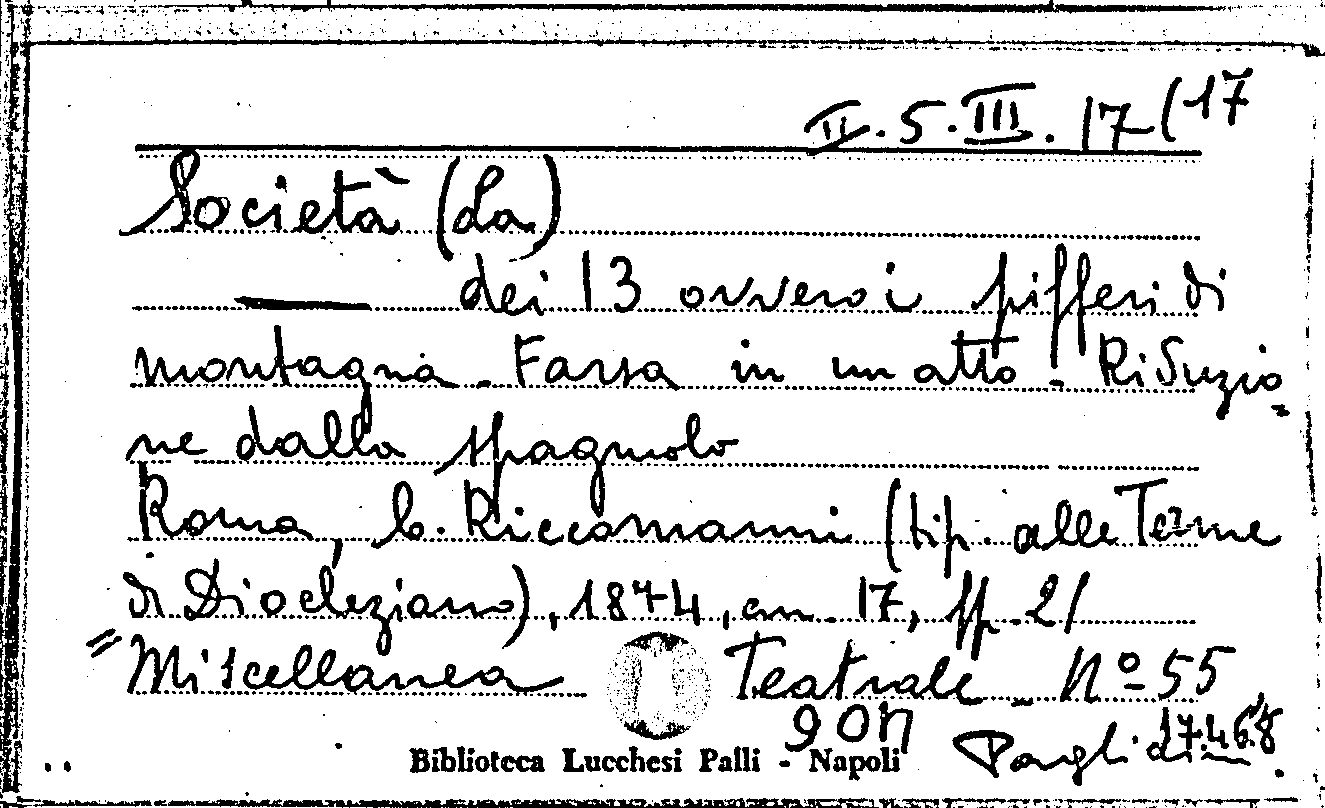 II.5.III.17(17
Società (La)
— dei 13 ovvero i pifferi di
montagna. Farsa in un atto - Riduzio=
ne dallo spagnolo
Roma, b. Riccomanni (tip. alle Terme
di Diocleziano), 1874, cm. 17, pp. 21
"Miscellanea Teatrale - Nº 55
Biblioteca Lucchesi Palli - Napoli